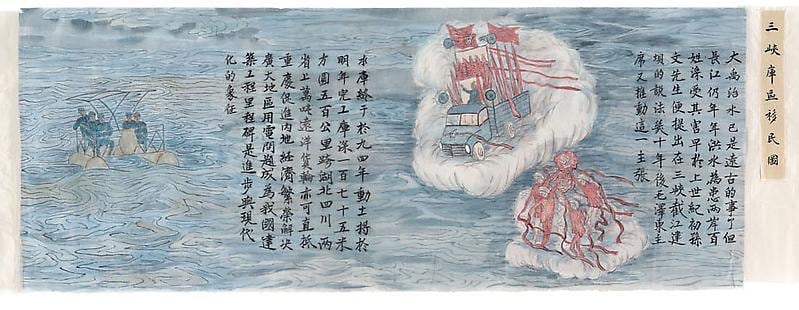 三峽庫區移民圖
大禹治水已是遠古的事了但
長江仍年年洪水為患兩岸百
姓深受其害早於上世紀初孫
文先生便提出在三峽截江建
壩的說法幾十年後毛澤東主
席又推動這一主張
水庫終于於九四年動土將於
明年完工庫深一百七十五米
方圓五百公里跨湖北四川兩
省上萬噸遠洋貨輪亦可直抵
重慶促進內地經濟繁榮解決
廣大地區用電問題成為我國建
築工程里程碑是進步與現代
化的象征